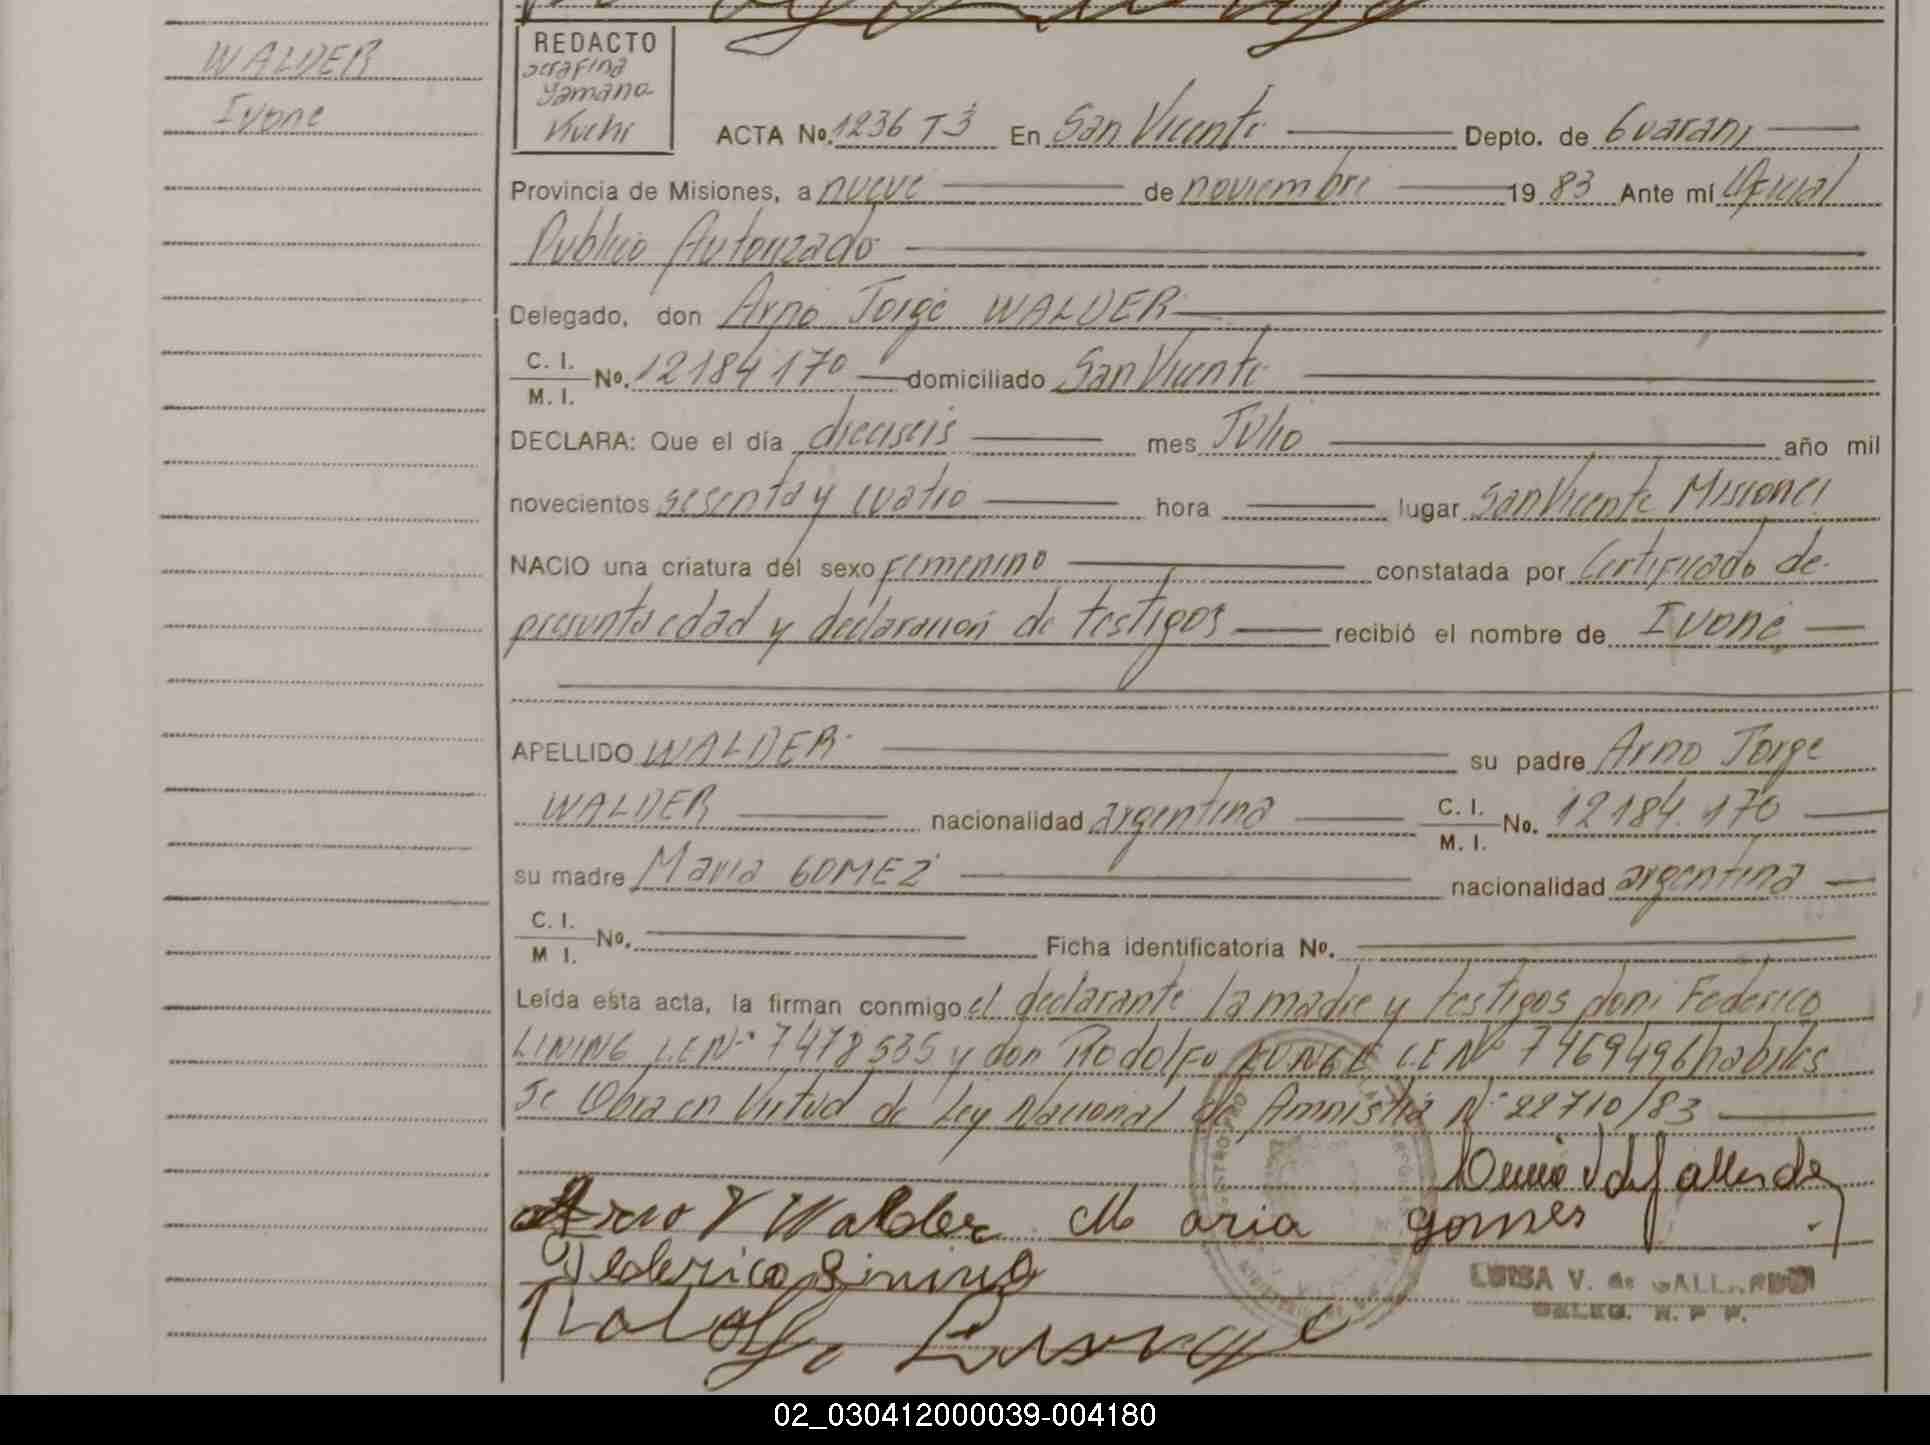 WALDER
Ivone
REDACTO
Serafina
Yamana
Kuchi
ACTA No. 1236 T3 En San Vicente Depto. de Guarani
Provincia de Misiones, a nueve de noviembre 19 83 Ante mí Oficial
Publico Autorizado
Delegado, don Arno Jorge WALDER
C. I.
M. I. No. 12184170 domiciliado San Vicente
DECLARA: Que el día dieciseis mes Julio año mil
novecientos sesenta y cuatro hora lugar San Vicente Misiones
NACIO una criatura del sexo femenino constatada por Certificado de
presunta edad y declaracion de testigos recibió el nombre de Ivone
APELLIDO WALDER su padre Arno Jorge
WALDER nacionalidad argentina C. I. M. I. No. 12184.170
su madre Maria GOMEZ nacionalidad argentina
C. I.
M I. No. Ficha identificatoria No.
Leída esta acta, la firman conmigo el declarante la madre y testigos don: Federico
LINING L.E N° 7478535 y don Rodolfo LE N° 7469496 habiles
Se Obra en Virtud de Ley Nacional de Amnistia N° 22710/83
Arno Y Walder Maria gomes
Federico Lining
LUISA V. de GALLARDO
DELEG. R. P P.
02_030412000039-004180